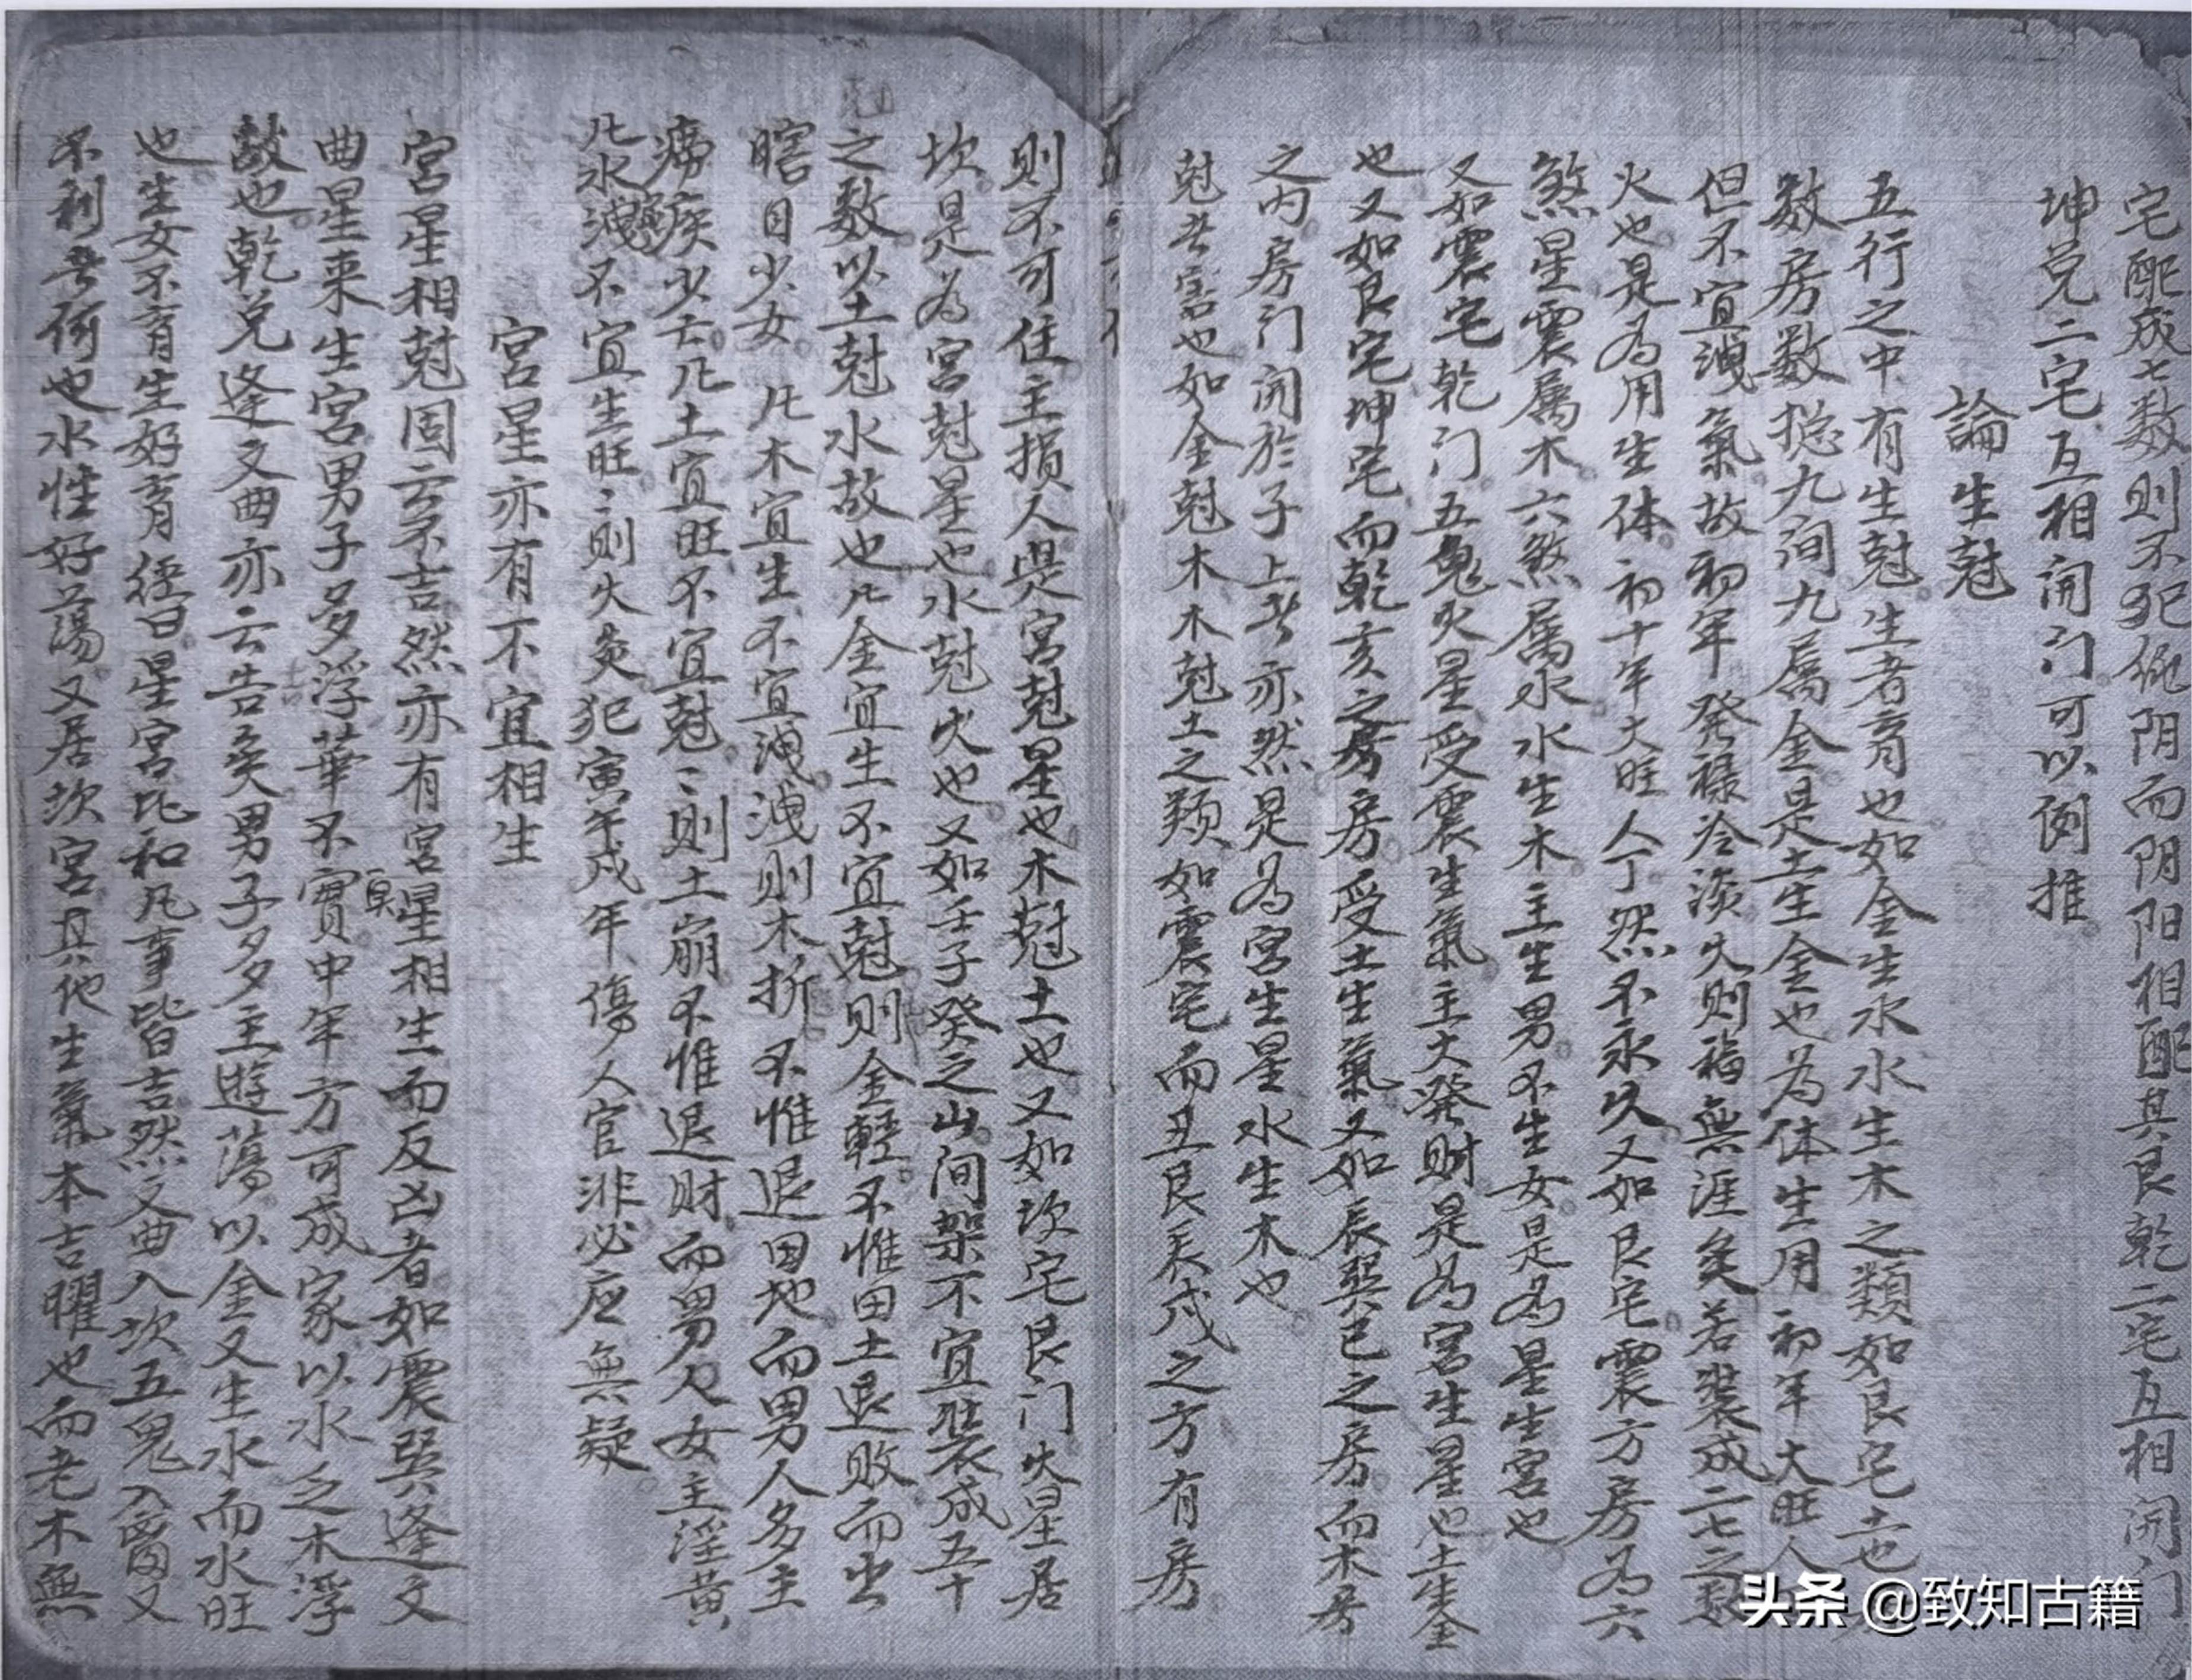 宅配成七数則不犯純阴而阴阳相配其艮乾二宅互相開门
坤兑二宅互相開门可以例推
論生尅
五行之中有生尅生者育也如金生水水生木之類如艮宅土也
数房数揔九间九属金是土生金也为体生用初年大旺人
但不宜洩氣故初年發禄冷淡久則福無涯矣若装成二七之数
火也是为用生体初十年大旺人丁然不永久又如艮宅震方房为六
煞星震属木六煞属水水生木主生男不生女是为星生宮也
又如震宅乾门五鬼火星受震生氣主大發财是为宮生星也土生金
也又如艮宅坤宅而乾亥之房受土生氣又如辰巽巳之房而木
之内房门開於子上者亦然是为宮生星水生木也
尅者害也如金尅木木尅土之類如震宅而丑艮戌之方有房
則不可住主損人是宮尅星也木尅土也又如坎宅艮门火星居
坎是为宮尅星也水尅火也又如壬子癸之山间架不宜装成五十
之数以土尅水故也凡金宜生不宜尅則金輕不惟田土退敗而出
瞎目少女凡木宜生不宜洩洩則木折不惟退田地而男人多主
癆疾少亡凡土宜旺不宜尅〻則土崩不惟退财而男女主淫黄
凡水洩不宜生旺〻則火炎犯寅午戌年傷人官非必应無疑
宮星亦有不宜相生
宮星相尅固云不吉然亦有宮星相生而反凶者如震巽逢文
曲星来生宮男子多浮華不實中年方可成家以水乏木浮
故也乾兑逢文曲亦云吉矣男子多主遊蕩以金又生水而水旺
也生女不育生好育経曰星宮比和凡事皆吉然文曲入坎五鬼入离又
不利者何也水性好蕩又居坎宮其他生氣本吉曜也而老木無
头条 @致知古籍